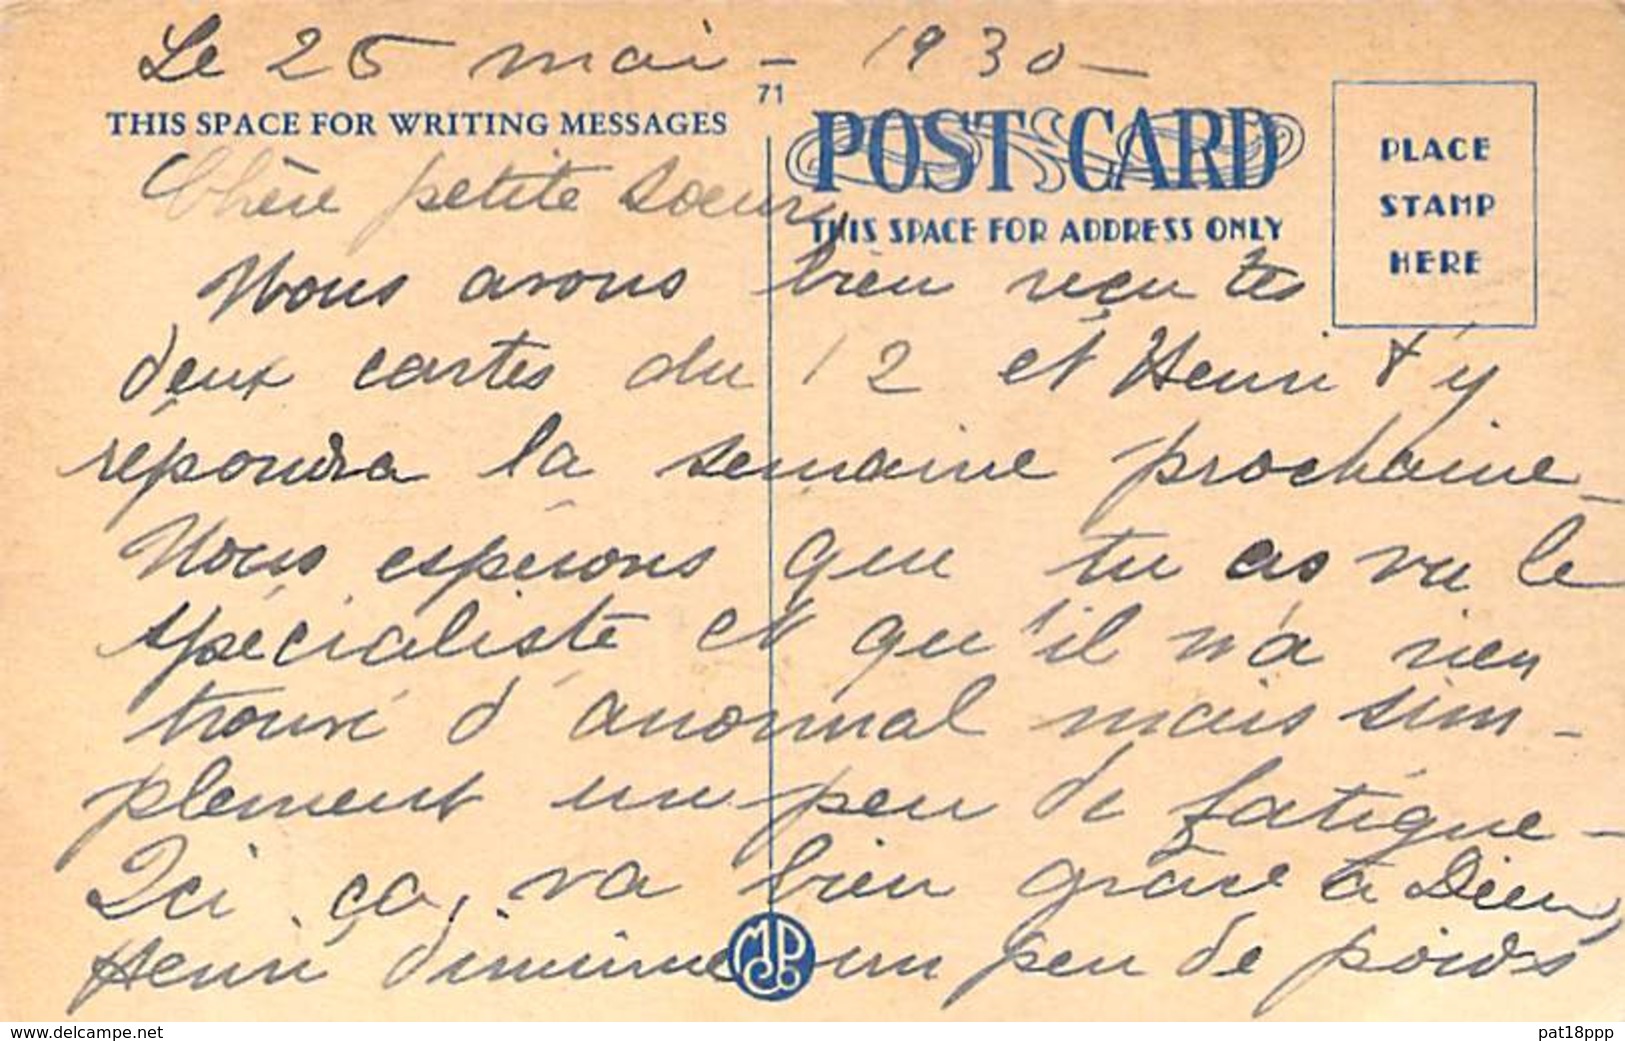 Le 25 mai - 1930 -
71
THIS SPACE FOR WRITING MESSAGES
POST CARD
THIS SPACE FOR ADDRESS ONLY
PLACE
STAMP
HERE
Chère petite soeur,
Nous avons bien reçu tes
deux cartes du 12 et Henri t'y
répondra la semaine prochaine -
Nous espérons que tu as vu le
spécialiste et qu'il n'a rien
trouvé d'anormal mais sim-
plement un peu de fatigue -
Ici ça va bien grâce à Dieu,
Henri diminue un peu de poids
MJPCo
www.delcampe.net
pat18ppp